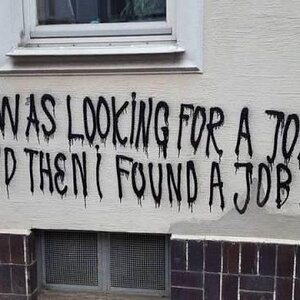 WAS LOOKING FOR A JO
D THEN i FOUND A JOB